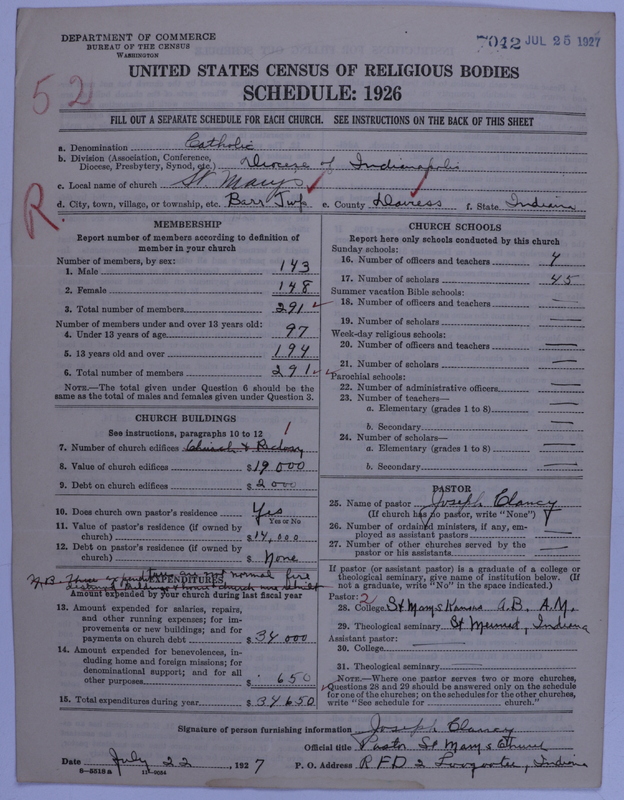 DEPARTMENT OF COMMERCE
BUREAU OF THE CENSUS
WASHINGTON
7042 JUL 25 1927
52
R.
UNITED STATES CENSUS OF RELIGIOUS BODIES
SCHEDULE: 1926
FILL OUT A SEPARATE SCHEDULE FOR EACH CHURCH. SEE INSTRUCTIONS ON THE BACK OF THIS SHEET
a. Denomination Catholic
b. Division (Association, Conference, Diocese, Presbytery, Synod, etc.) Diocese of Indianapolis
c. Local name of church St. Marys
d. City, town, village, or township, etc. Barr Twp e. County Daviess f. State Indiana
MEMBERSHIP
Report number of members according to definition of
member in your church
Number of members, by sex:
1. Male 143
2. Female 148
3. Total number of members 291
Number of members under and over 13 years old:
4. Under 13 years of age 97
5. 13 years old and over 194
6. Total number of members 291
NOTE.—The total given under Question 6 should be
the same as the total of males and females given under Question 3.
CHURCH BUILDINGS
See instructions, paragraphs 10 to 12
7. Number of church edifices Church & Rectory 1
8. Value of church edifices $19000
9. Debt on church edifices $2000
10. Does church own pastor's residence Yes
Yes or No
11. Value of pastor's residence (if owned by
church) $14,000
12. Debt on pastor's residence (if owned by
church) $None
N.B. These expenditures are not normal fire
EXPENDITURES
Amount expended by your church during last fiscal year
13. Amount expended for salaries, repairs,
and other running expenses; for im-
provements or new buildings; and for
payments on church debt $34000
14. Amount expended for benevolences, in-
cluding home and foreign missions; for
denominational support; and for all
other purposes $650
15. Total expenditures during year $34650
CHURCH SCHOOLS
Report here only schools conducted by this church
Sunday schools:
16. Number of officers and teachers 4
17. Number of scholars 45
Summer vacation Bible schools:
18. Number of officers and teachers —
19. Number of scholars —
Week-day religious schools:
20. Number of officers and teachers —
21. Number of scholars —
Parochial schools:
22. Number of administrative officers —
23. Number of teachers—
a. Elementary (grades 1 to 8) —
b. Secondary —
24. Number of scholars—
a. Elementary (grades 1 to 8) —
b. Secondary —
PASTOR
25. Name of pastor Joseph Clancy
(If church has no pastor, write "None")
26. Number of ordained ministers, if any, em-
ployed as assistant pastors —
27. Number of other churches served by the
pastor or his assistants —
If pastor (or assistant pastor) is a graduate of a college or
theological seminary, give name of institution below. (If
not a graduate, write "No" in the space indicated.)
Pastor: 2
28. College St Marys Kansas A.B. A.M.
29. Theological seminary St Meinrad, Indiana
Assistant pastor:
30. College
31. Theological seminary
NOTE.—Where one pastor serves two or more churches,
Questions 28 and 29 should be answered only on the schedule
for one of the churches; on the schedules for the other churches,
write "See schedule for church."
Signature of person furnishing information Joseph Clancy
Official title Pastor St Marys Church
Date July 22, 1927 P. O. Address RFD 2 Loogootee, Indiana
8-5518a 11-9034